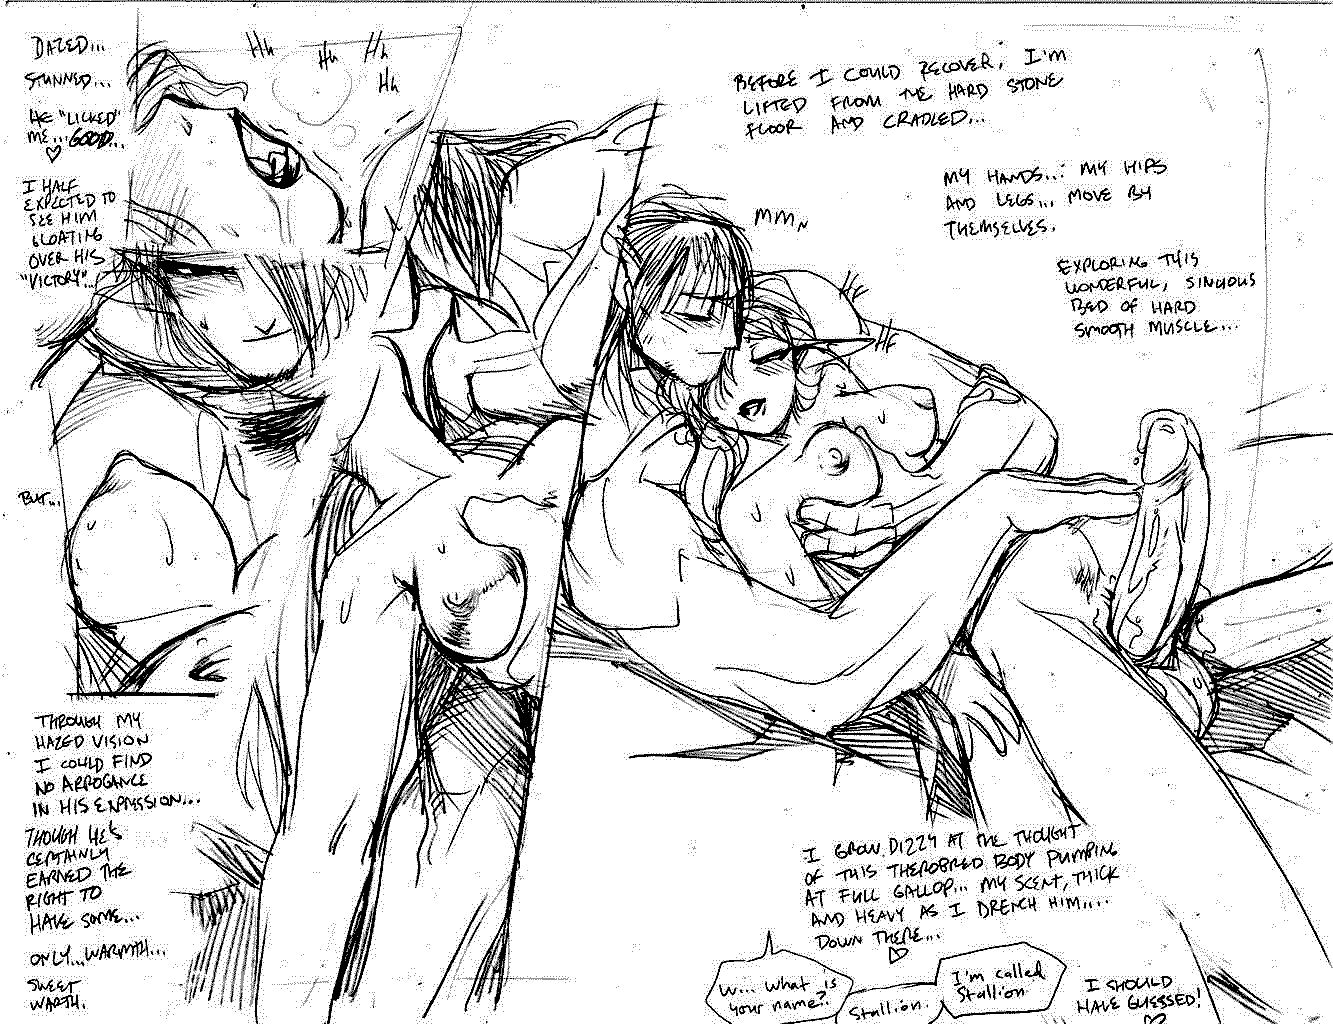 DAZED...
STUNNED...
HE "LICKED"
ME... GOOD...
I HALF
EXPECTED TO
SEE HIM
GLOATING
OVER HIS
"VICTORY"...
BUT...
THROUGH MY
HAZED VISION
I COULD FIND
NO ARROGANCE
IN HIS EXPRESSION...
THOUGH HE'S
CERTAINLY
EARNED THE
RIGHT TO
HAVE SOME...
ONLY... WARMTH...
SWEET
WARTH.
Hh
Hh
Hh
Hh
BEFORE I COULD RECOVER, I'M
LIFTED FROM THE HARD STONE
FLOOR AND CRADLED...
MY HANDS... MY HIPS
AND LEGS... MOVE BY
THEMSELVES.
EXPLORING THIS
WONDERFUL, SINUOUS
BED OF HARD
SMOOTH MUSCLE...
MMM
HF
I GROW DIZZY AT THE THOUGHT
OF THIS THEROBRED BODY PUMPING
AT FULL GALLOP... MY SCENT, THICK
AND HEAVY AS I DRENCH HIM....
DOWN THERE...
W... what is
your name?
Stallion.
I'm called
Stallion
I SHOULD
HAVE GUESSED!